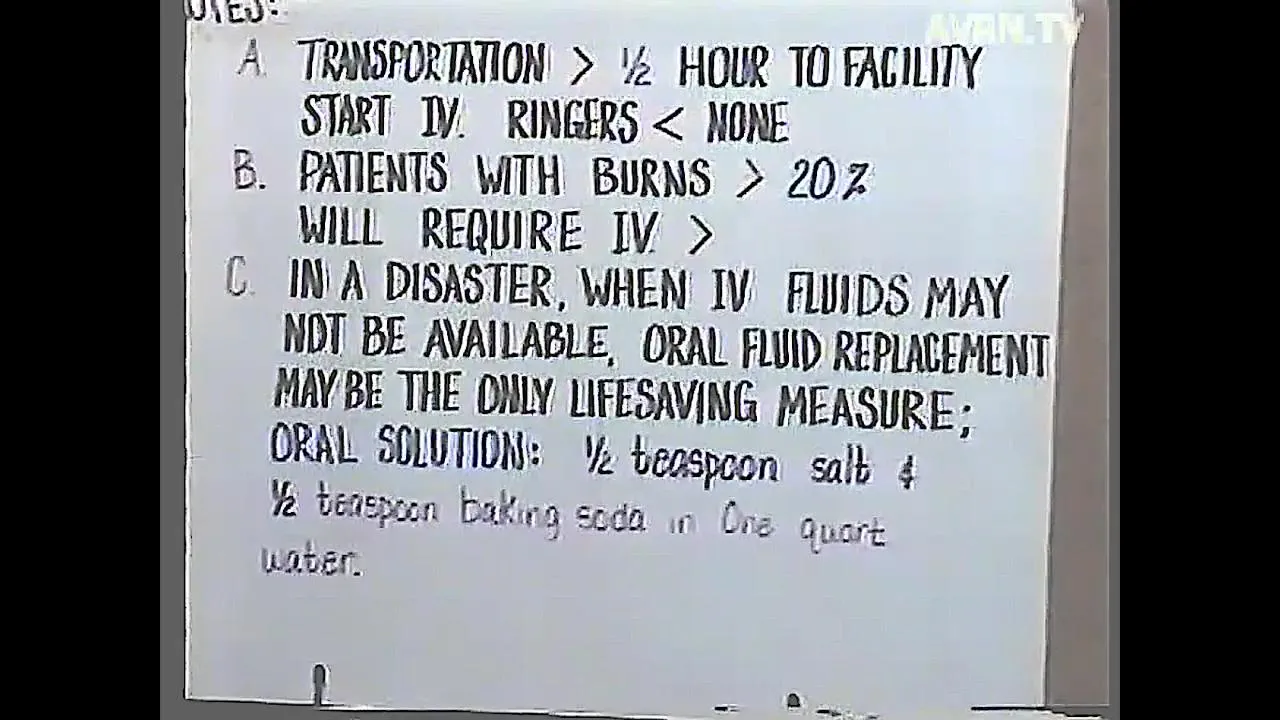 OTES:
AVAN.TV
A. TRANSPORTATION > ½ HOUR TO FACILITY
START IV. RINGERS < NONE
B. PATIENTS WITH BURNS > 20%
WILL REQUIRE IV. >
C. IN A DISASTER, WHEN IV FLUIDS MAY
NOT BE AVAILABLE, ORAL FLUID REPLACEMENT
MAY BE THE ONLY LIFESAVING MEASURE;
ORAL SOLUTION: ½ teaspoon salt &
½ teaspoon baking soda in One quart
water.